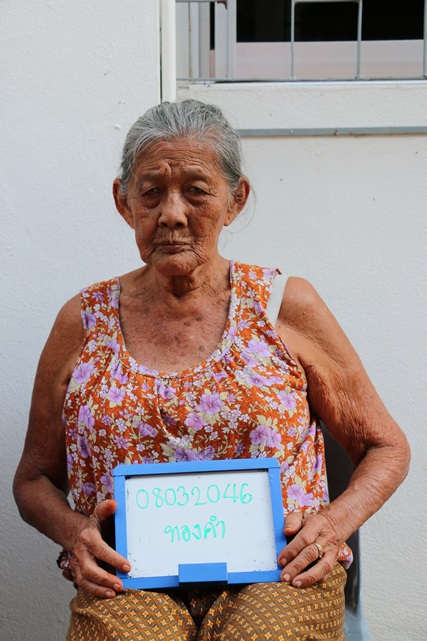 08032046
ทองคำ